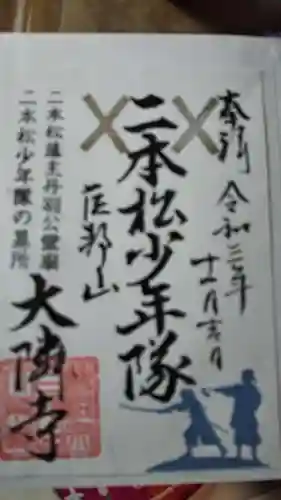 奉拝 令和三年
十一月吉日
二本松少年隊
巨邦山
二本松藩主丹羽公霊廟
二本松少年隊の墓所
大隣寺